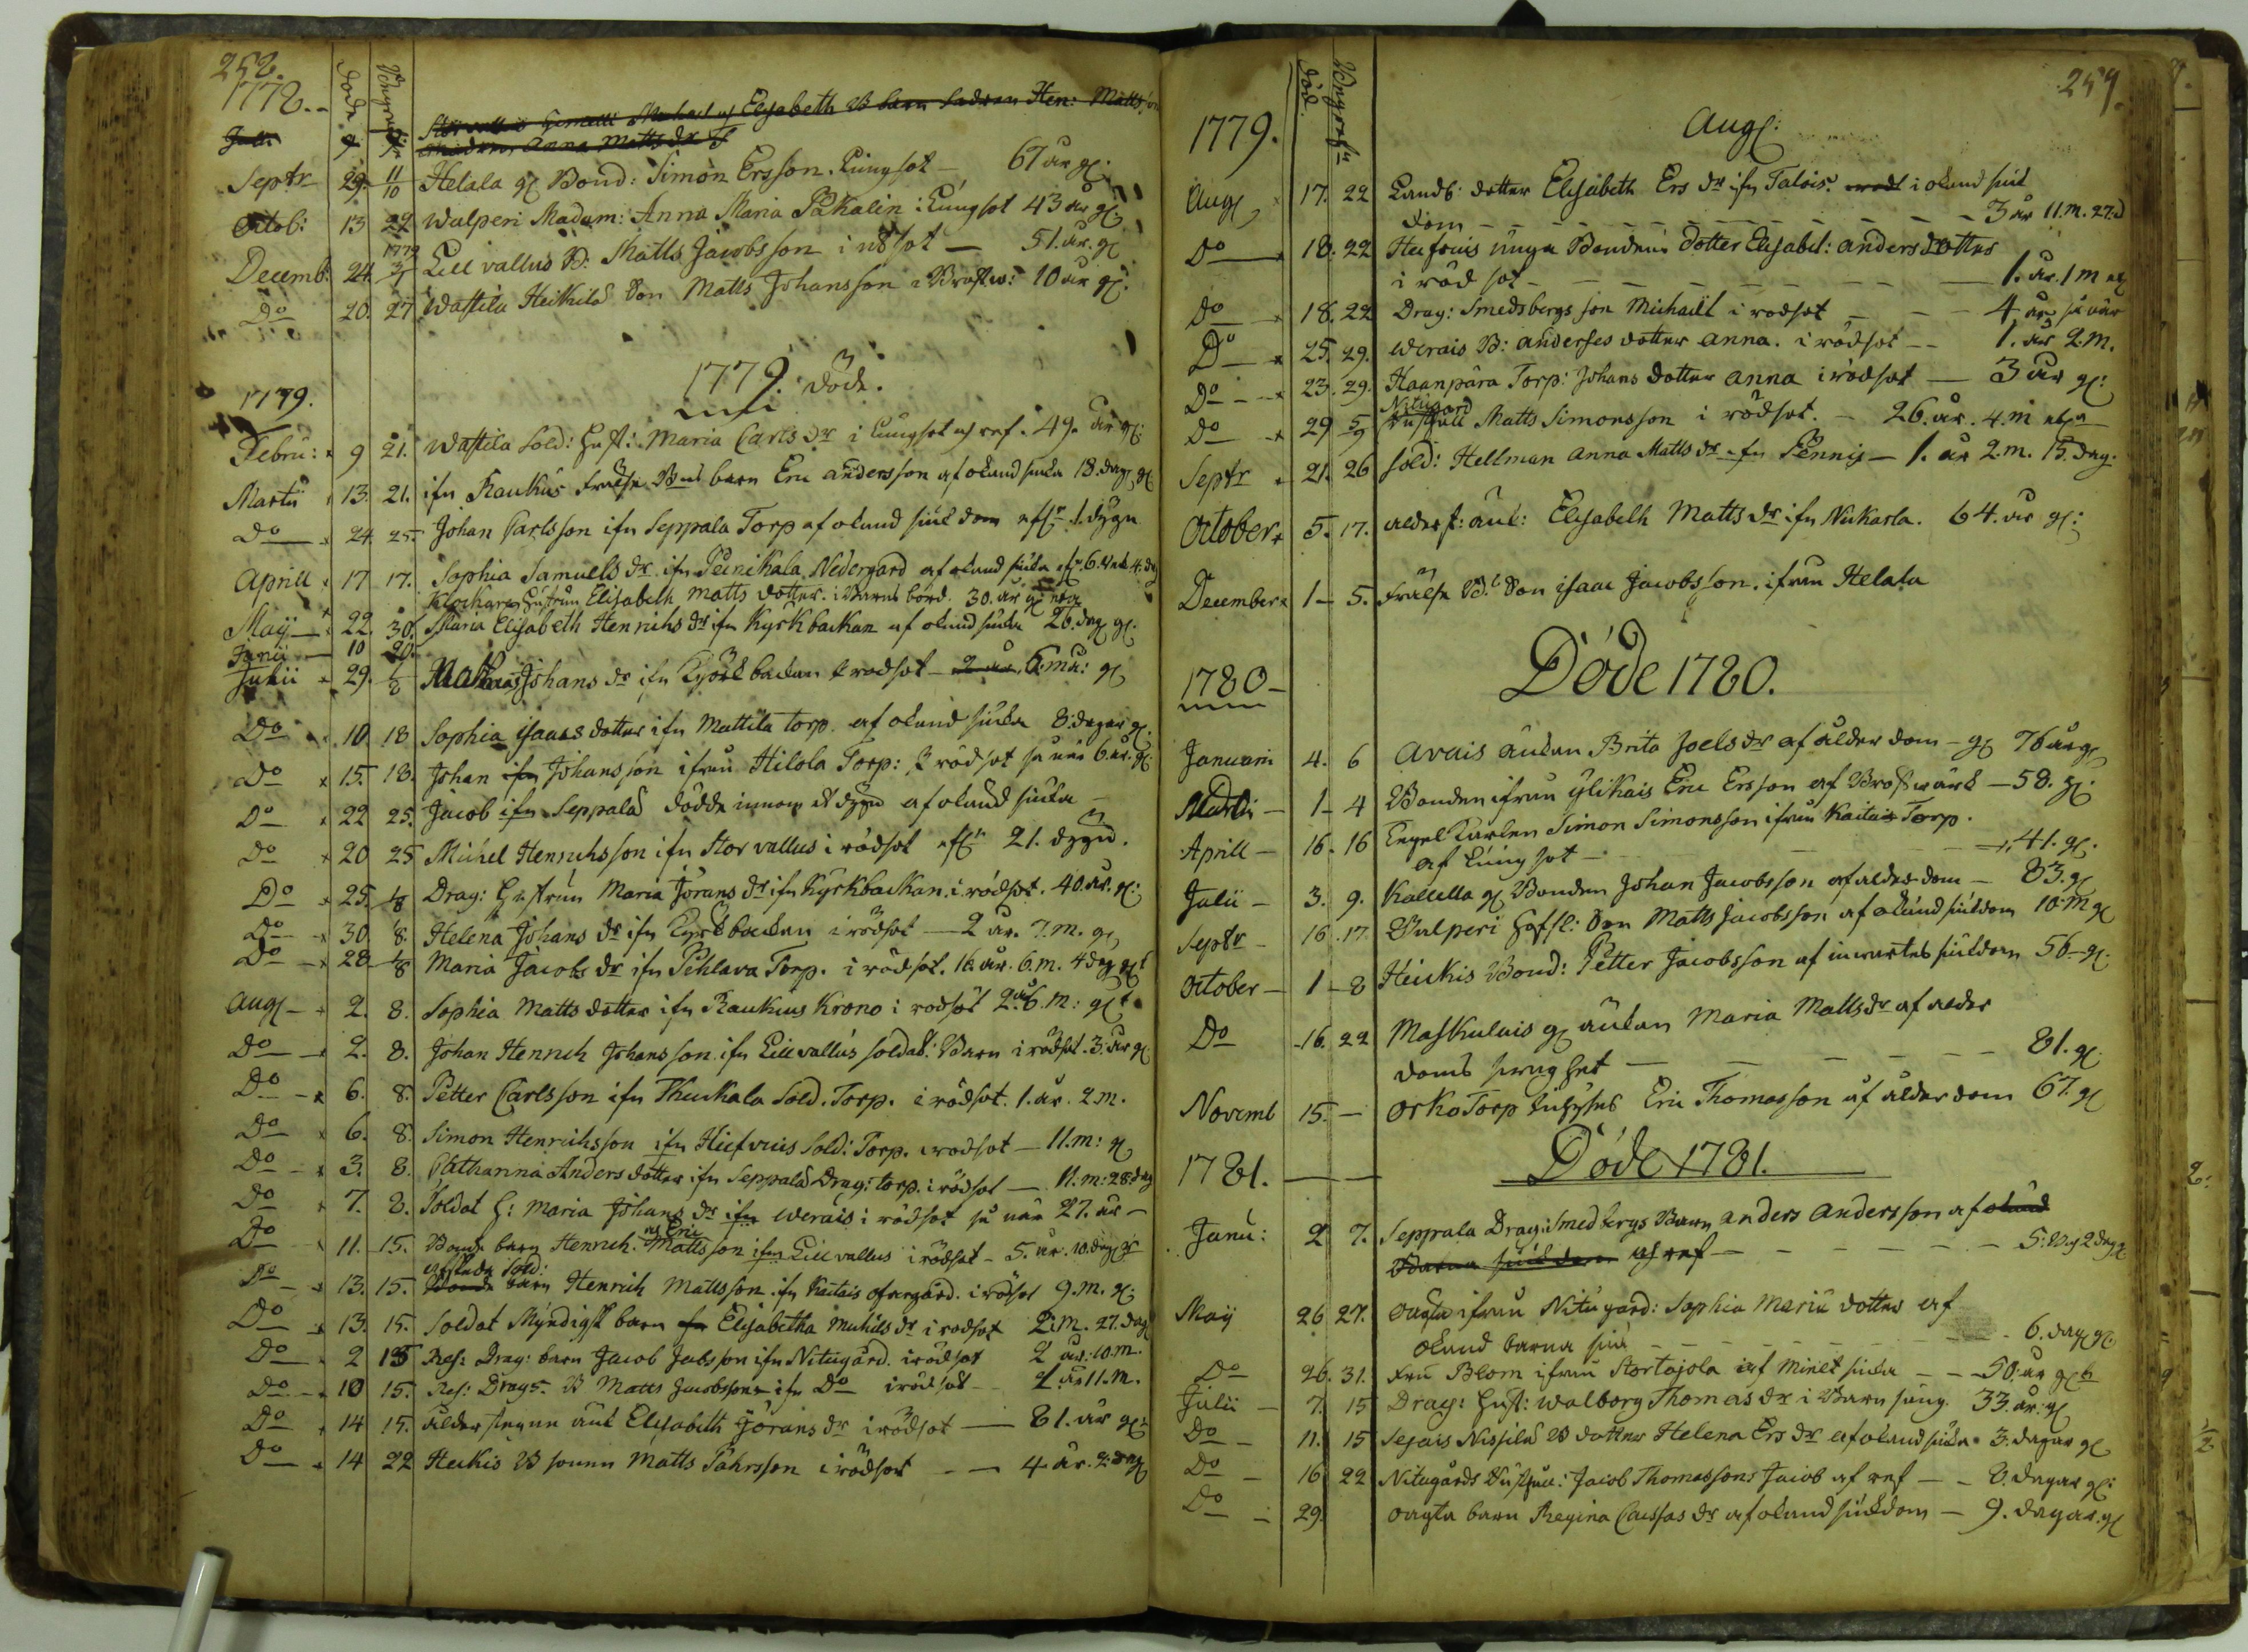 252.
1778.
Död. Begrafn:
Juli 9
Storvallus Gemelli Michael och Elisabeth B barn Fadren Hen: Matts son
modren Anna Matts dr
Septr 29. 11/10 Helala gl Bond: Simon Ersson. Lungsot — 67 år gl:
Octob: 13 29 Walperi Madam: Anna Maria Påkalin i Lungsot 43 år gl:
1779
Decemb: 24. 3/1 Lill vallus B: Matts Jacobsson i rödsot — 51. år. gl
Do 20. 27 Wastila Heikilä Son Matts Johansson i Bråstw: 10 år gl:
1779. döde.
1779.
Febru: 9 21. Wastila Sold: Hust: Maria Carls dr i Lungsot och ref. 49. år gl:
Martii 13. 21. ifrn Raukus Frälse Bns barn Eric andersson af okand siuka 18. dag gl
Do 24. 25. Johan Carlsson ifrn Seppala Torp af okand siukdom 1. dygn
Aprill 17 17. Sophia Samuels dr ifrn Peinikala Nedergard af okand siuka 6. 4. dag
Klockares Hustrun Elisabeth matts dotter. i Barns börd. 30. år gl
Maij 22. 30. Maria Elisabeth Henrichs dr ifrn Kyrkbackan af okand siuka 26. dag gl.
Junii 10 20.
Julii 29. 1/8 Johans dr ifrn Kyrkbackan i rodsot — 2 år 6. mn: gl
Do 10. 18 Sophia isaacs dotter ifrn Mattila torp. af okand siuka 8. dagar gl.
Do 15. 18. Johan ifrn Johansson ifrån Hilola Torp: i rödsot 6. år. gl
Do 22 25. Jacob ifrn Seppalas dödde innom dygn af okand siuka —
Do 20 25 Michel Henrichsson ifrn Storvallus i rödsot 21. dygn.
Do 25. 1/8 Drag: Hustrun Maria Jörans dr ifrn Kyrkbackan. i rödsot. 40. år. gl:
Do 30. 8. Helena Johans dr ifrn Kyrkbackan i rödsot — 2 år. 7. m. gl
Do 28 1/8 Maria Jacobs dr ifrn Pehlava Torp. i rödsot. 16. år. 6. m. 4 dag gl
Aug 2. 8. Sophia Matts dotter ifrn Raukus Krono i rodsot 2. år 6. m: gl
Do 2. 8. Johan Henrich Johansson ifrn Lillvallus soldat: Barn i rödsot. 3. år gl
Do 6. 8. Petter Carlsson ifrn Kuukala Sold. Torp. i rödsot. 1. år. 2 m.
Do 6. 8. Simon Henrichsson ifrn Sold: Torp. i rodsot — 11. m: gl
Do 3. 8. Catharina Anders dotter ifrn Seppalas Drag: torp. i rödsot — 11. m: 28 dag
Do 7. 8. Soldat H: Maria Johans dr ifrn Werais i rödsot 27. år —
och Eric
Do 11. 15. Bonde barn Henrich. Mattsson ifrn Lillvallus i rödsot — 5. år. 10. dag
afskeds Sold:
Do 13. 15. Bonde barn Henrich Mattsson ifrn Kaitais ofvergård. i rödsot 9. m. gl:
Do 13. 15. Soldat Myndigst barn Elisabetha Michels dr i rodsot 2. m. 27. dag
Do 2 15 Res: Drag: barn Jacob Jacobsson ifrn Nitugård. i rödsot 2 år: 10. m.
Do 10 15. Res: Drag: B Matts Jacobsson ifrn Do i rödsot — 1 år 11. m.
Do 14 15. ålderstegne änk Elisabeth Görans dr i rödsot — 81. år gl:
Do 14 22 Heikis B sonen Matts Påhrsson i rödsot — — 4 år. 2. dag
259.
1779. Död. Begrafn
Aug:
Aug 17. 22 Landb: dotter Elisabeth Ers dr ifrn Talois: i okand siuk
dom — — — 3 år 11. m. 27. d
Do 18. 22 unga Bondens dotter Elisabet: anders dotter
i röd sot — — — 1. år. 1 m
Do 18. 22 Drag: Smedsbergs son Michaël i rodsot — — 4 år
Do 25. 29. Werais B: anderses dotter anna. i rödsot — 1. år 2. m.
Do 23. 29. Haanpära Torp: Johans dotter anna i rödsot — 3 år gl:
Nitugard
Do 29 5/9 Matts Simonsson i rödsot. — 26. år. 4. m
Septr 21. 26 Sold: Hellman Anna Matts dr ifrn Pennis — 1. år 2. m. 15. dag.
October 5. 17. alderst: änk: Elisabeth Matts dr ifrn Nikarla. 64. år gl:
December 1 — 5. Frälse B: Son isaac Jacobsson. ifrån Helala
Döde 1780.
1780 —
Januari 4. 6 Avais änkan Brita Joels dr af ålderdom — gl 76 år gl
Martii — 1 — 4 Bonden ifrån ylikais Eric Ersson af Bröstwärk — 58. gl:
Aprill — 16. 16 Simon Simonsson ifrån Kaitais Torp.
af Lungsot — — 41. gl.
Julii — 3. 9. Kallella gl Bonden Johan Jacobsson af alderdom — 83. gl
Septr — 16. 17 Valperi Son Matts Jacobsson af okänd siukdom 10. m gl
October — 1 — 8 Heikis Bond: Petter Jacobsson af invertes siukdom 56 — gl.
Do — 16. 22 Maskulais gl änkan Maria Matts dr af alder
doms — — 81. gl.
Novemb 15. — Orko Torp Eric Thomasson af ålderdom 67. gl
Döde 1781.
1781. — —
Janu: 2 7. Seppala Drag: Smedbergs Barn anders andersson af okänd
siukdom af ref — — — 5: V. 2 dag
Maij 26 27. ifrån Nitugård: Sophia Mariæ dotter af
okänd barna siuk — — — 6. dag gl.
Do 26. 31. Fru Blom ifrån Stortojola af Mielt siuka — — 50. år gl
Julii — 7. 15 Drag: Hust: Walborg Thomas dr i Barn säng. 33. år: gl
Do — 11. 15 Sejais Nissilä B dotter Helena Ers dr af okand siuka 3. dagar gl
Do — 16 22 Nitugårds: Jacob Thomassons Jacob af ref — — 8. dagar gl:
Do — 29. barn Regina dr af okand siukdom — 9. dagar. gl